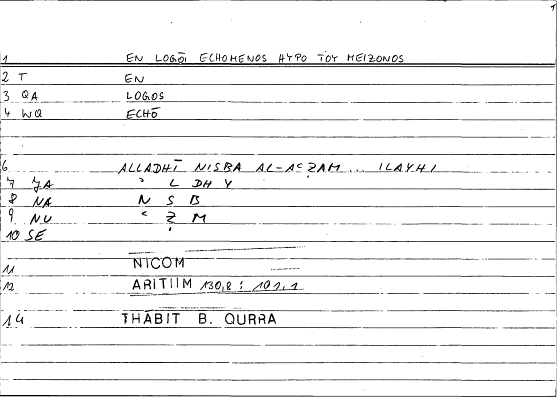 1
1 EN LOGŌI ECHOMENOS HYPO TOY MEIZONOS
2 T EN
3 QA LOGOS
4 WQ ECHŌ
6 ALLADHĪ NISBA AL-AʿẒAM ... ILAYHI
7 JA ʾ L DH Y
8 NA N S B
9 NU ʿ Ẓ M
10 SE
11 NICOM
12 ARITIIM 130,8 : 101,1
14 THABIT B. QURRA